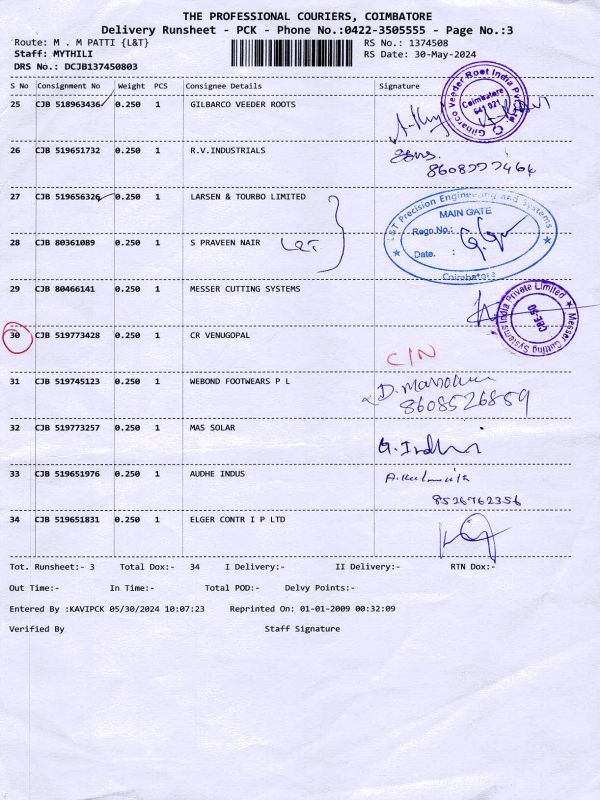 THE PROFESSIONAL COURIERS, COIMBATORE
Delivery Runsheet - PCK - Phone No.:0422-3505555 - Page No.:3
Route: M . M PATTI {L&T} RS No.: 1374508
Staff: MYTHILI RS Date: 30-May-2024
DRS No.: DCJB137450803
S No Consignment No Weight PCS Consignee Details Signature
25 CJB 518963436 0.250 1 GILBARCO VEEDER ROOTS
Gilbarco Veeder Root India Pvt
Coimbatore
641 021
26 CJB 519651732 0.250 1 R.V.INDUSTRIALS
27 CJB 519656326 0.250 1 LARSEN & TOURBO LIMITED
L&T Precision Engineering and Systems
MAIN GATE
Rego.No.:
28 CJB 80361089 0.250 1 S PRAVEEN NAIR L&T
Date. :
Coimbatore
29 CJB 80466141 0.250 1 MESSER CUTTING SYSTEMS
Messer Cutting Systems India Private Limited
CBE-50
30 CJB 519773428 0.250 1 CR VENUGOPAL
C/N
31 CJB 519745123 0.250 1 WEBOND FOOTWEARS P L
8608526859
32 CJB 519773257 0.250 1 MAS SOLAR
33 CJB 519651976 0.250 1 AUDHE INDUS
8526762356
34 CJB 519651831 0.250 1 ELGER CONTR I P LTD
Tot. Runsheet:- 3 Total Dox:- 34 I Delivery:- II Delivery:- RTN Dox:-
Out Time:- In Time:- Total POD:- Delvy Points:-
Entered By :KAVIPCK 05/30/2024 10:07:23 Reprinted On: 01-01-2009 00:32:09
Verified By Staff Signature